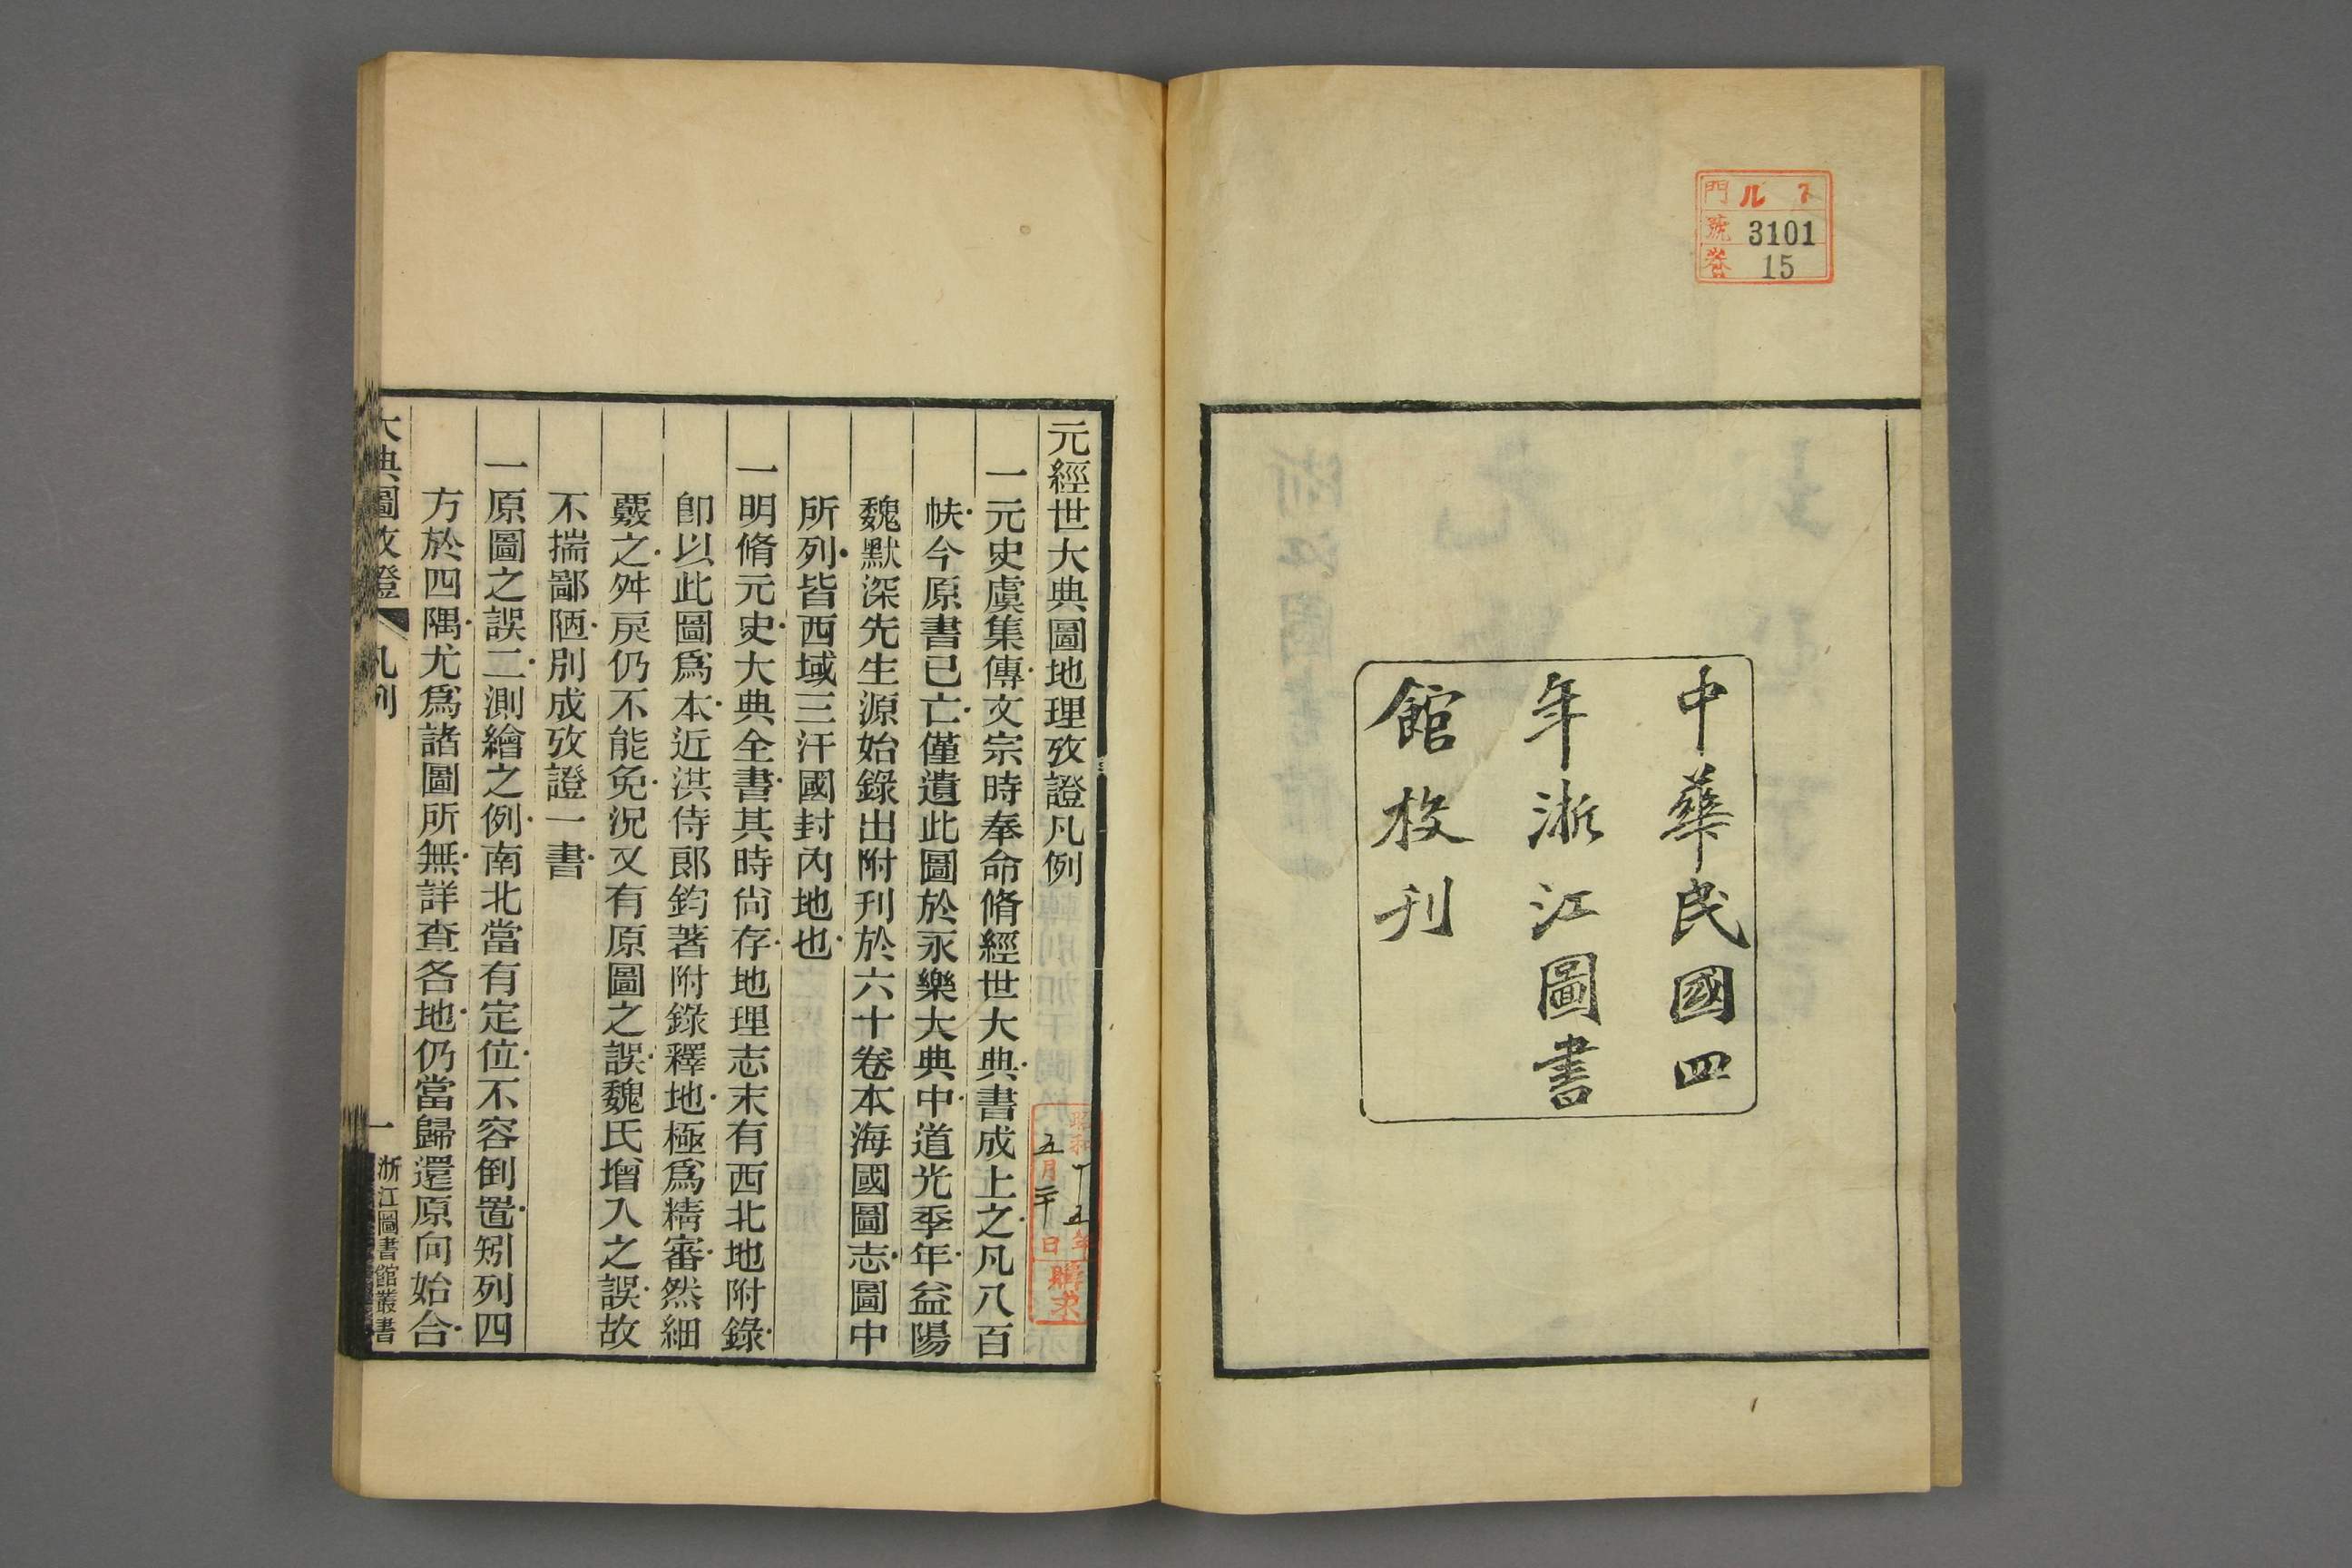 門 ル
號 3101
卷 15
中華民國四
年浙江圖書
館校刊
元經世大典圖地理攷證凡例
一元史虞集傳文宗時奉命脩經世大典書成上之凡八百
帙今原書已亡僅遺此圖於永樂大典中道光季年益陽
魏默深先生源始錄出附刊於六十卷本海國圖志圖中
所列皆西域三汗國封內地也
一明脩元史大典全書其時尙存地理志末有西北地附錄
卽以此圖爲本近洪侍郞鈞著附錄釋地極爲精審然細
覈之舛戾仍不能免況又有原圖之誤魏氏增入之誤故
不揣鄙陋別成攷證一書
一原圖之誤二測繪之例南北當有定位不容倒置矧列四
方於四隅尤爲諸圖所無詳查各地仍當歸還原向始合
大典圖攷證 凡例 一 浙江圖書館叢書
昭和十五年
五月二十日
購求